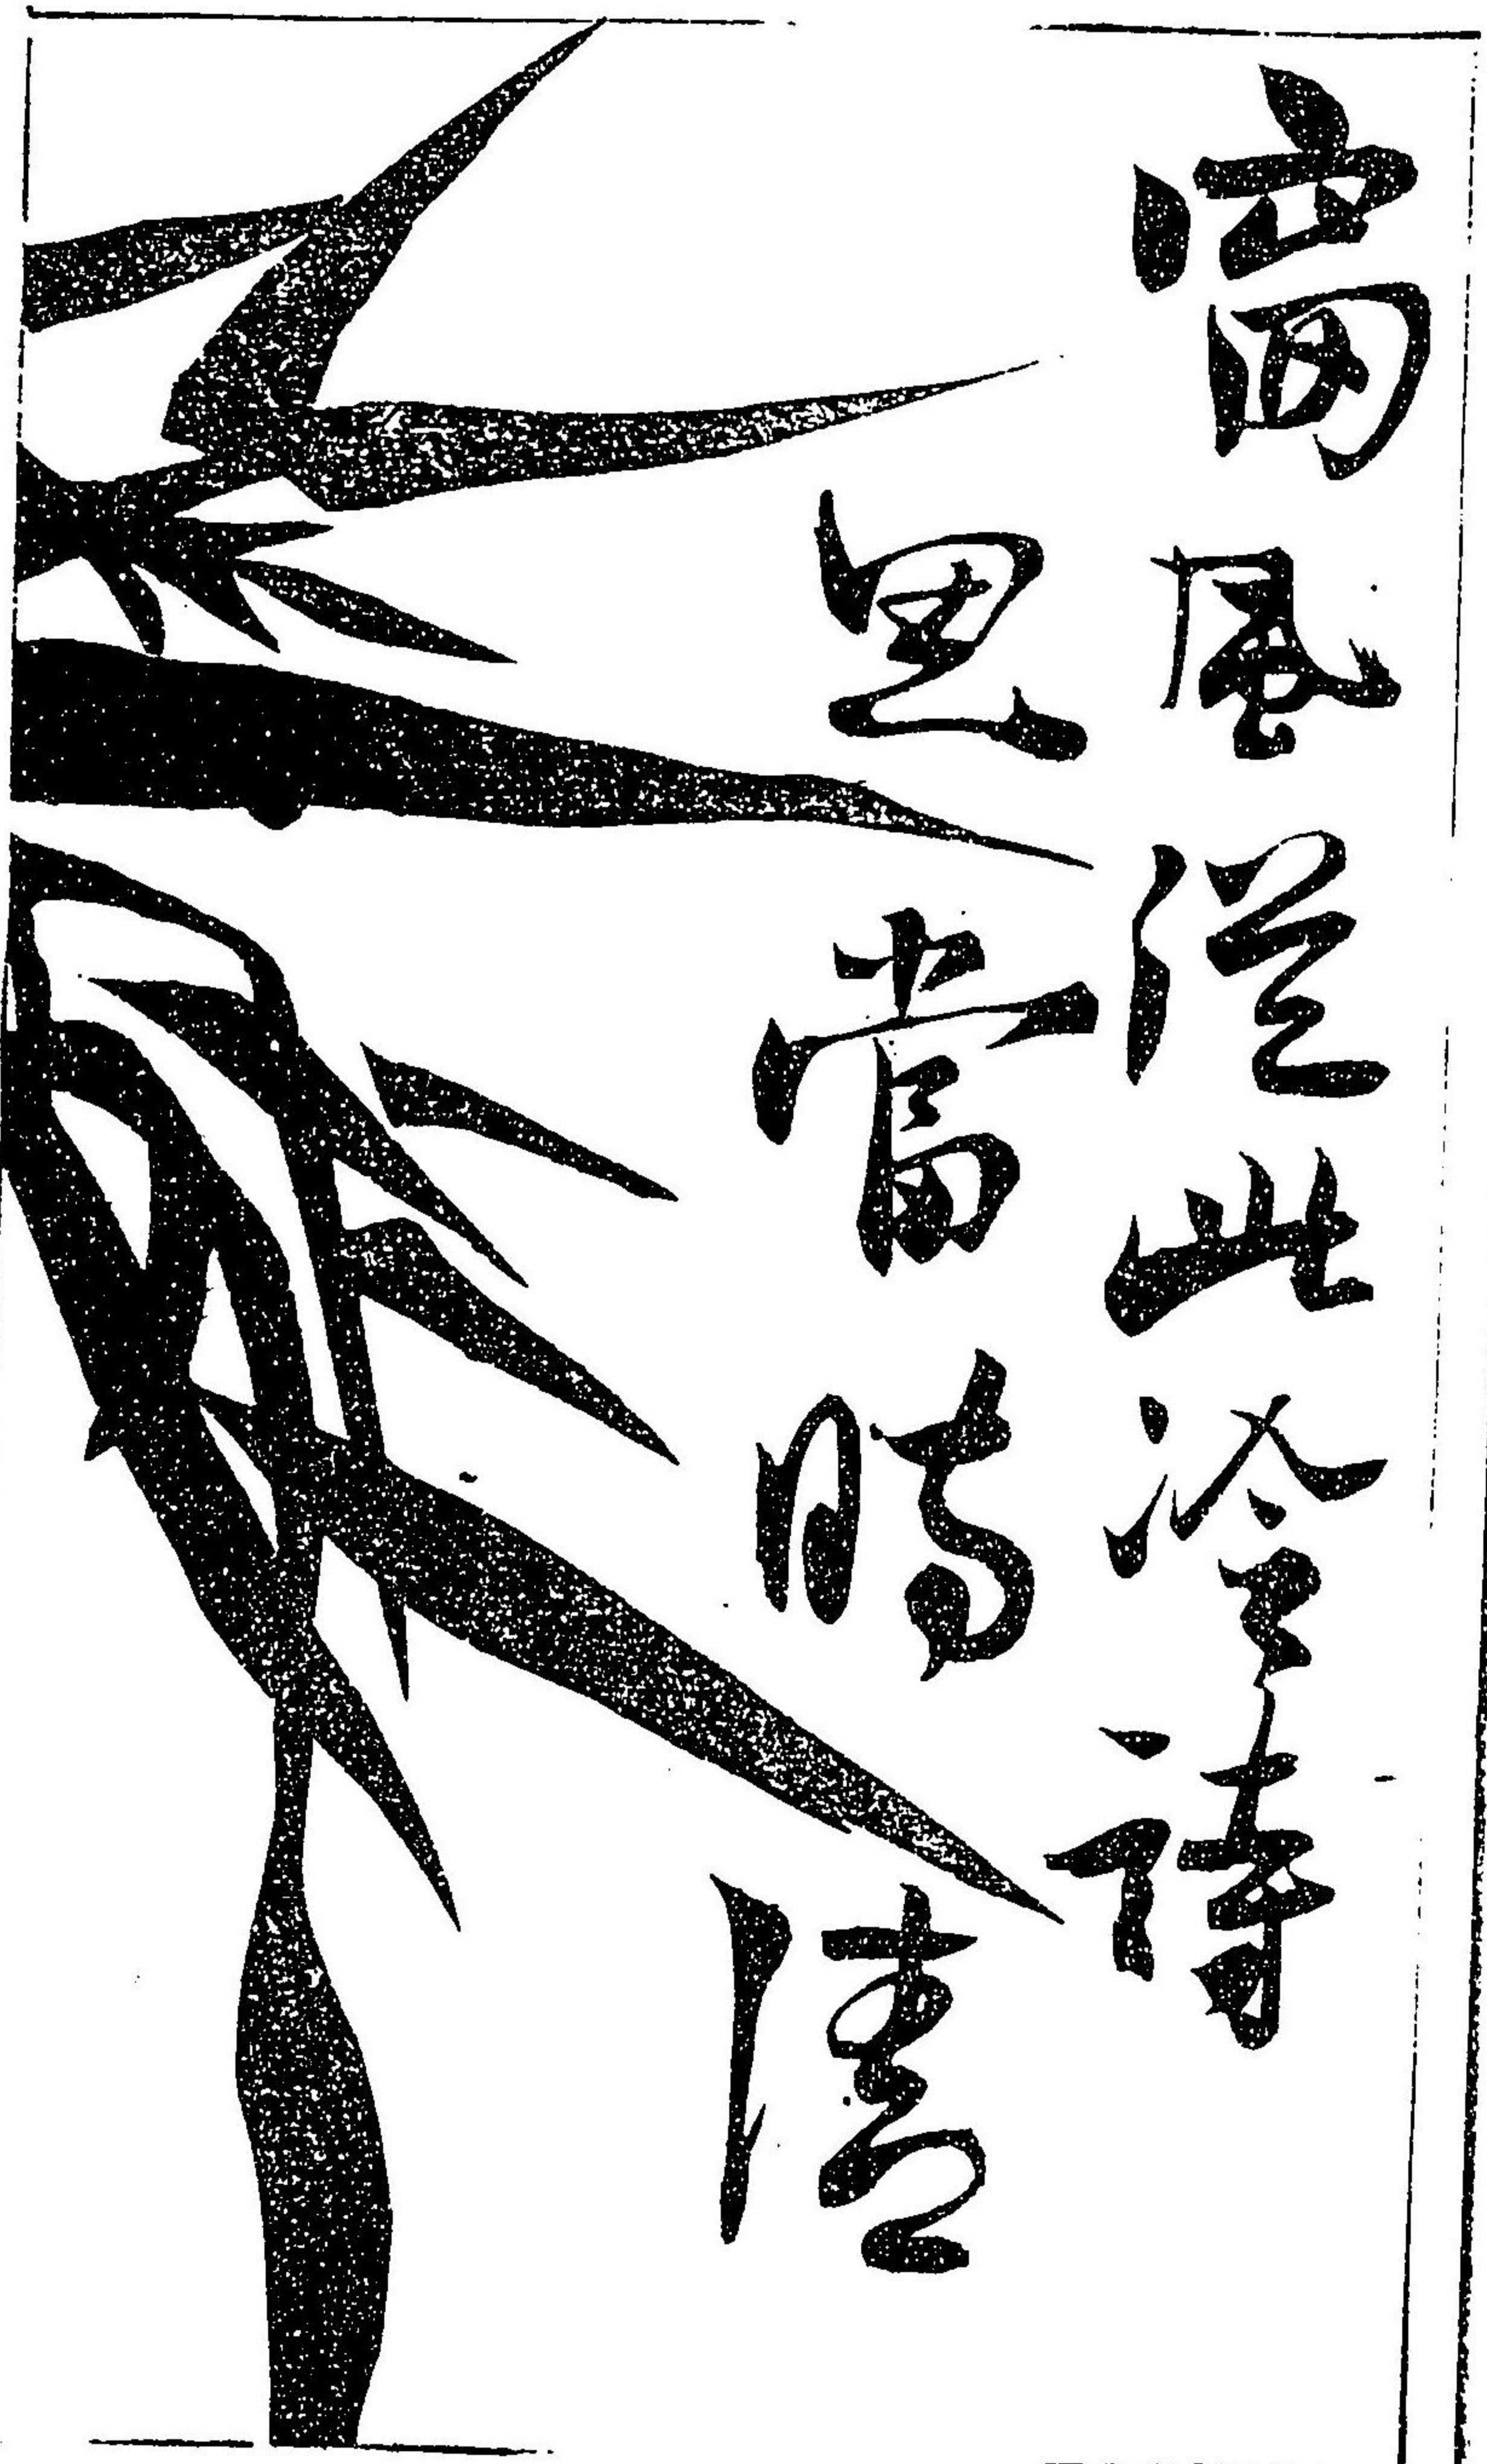 窗風從此冷詩
思當時清